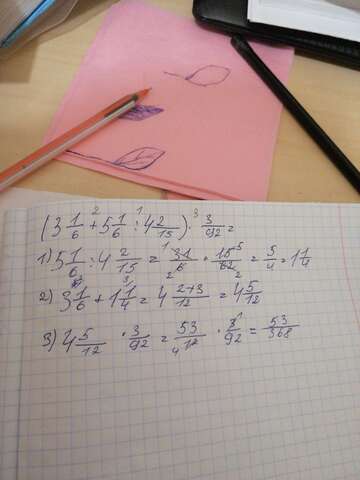 (3 1/6 + 5 1/6 : 4 2/15) · 3/92 =
1) 5 1/6 : 4 2/15 = 31/6 · 15/62 = 5/4 = 1 1/4
2) 3 1/6 + 1 1/4 = 4 2+3/12 = 4 5/12
3) 4 5/12 · 3/92 = 53/12 · 3/92 = 53/368